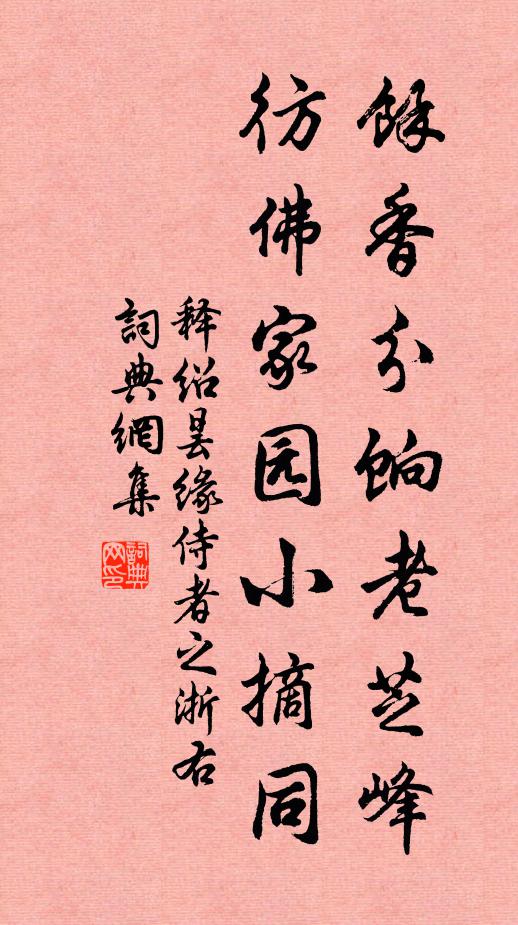 餘香分餉老芝峰
彷佛家园小摘同
释绍昙缘侍者之浙右
詞典網集
詞典网印